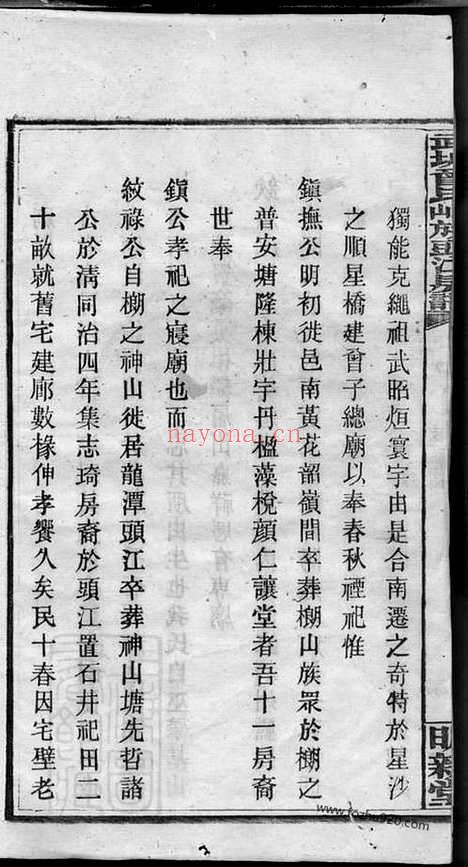 獨能克繩祖武昭烜寰宇由是合南遷之奇特於星沙
之順星橋建曾子總廟以奉春秋禋祀惟
鎭撫公明初徙邑南黃花韶嶺間卒葬棚山族眾於棚之
普安塘隆棟壯宇丹楹藻梲顏仁讓堂者吾十一房裔
世奉
鎭公孝祀之寢廟也而
紋祿公自棚之神山徙居龍潭頭江卒葬神山塘先哲諸
公於淸同治四年集志琦房裔於頭江置石井祀田二
十畝就舊宅建廊數椽伸孝饗久矣民十春因宅壁老
明新堂
nayona.cn
www.fozhu920.com